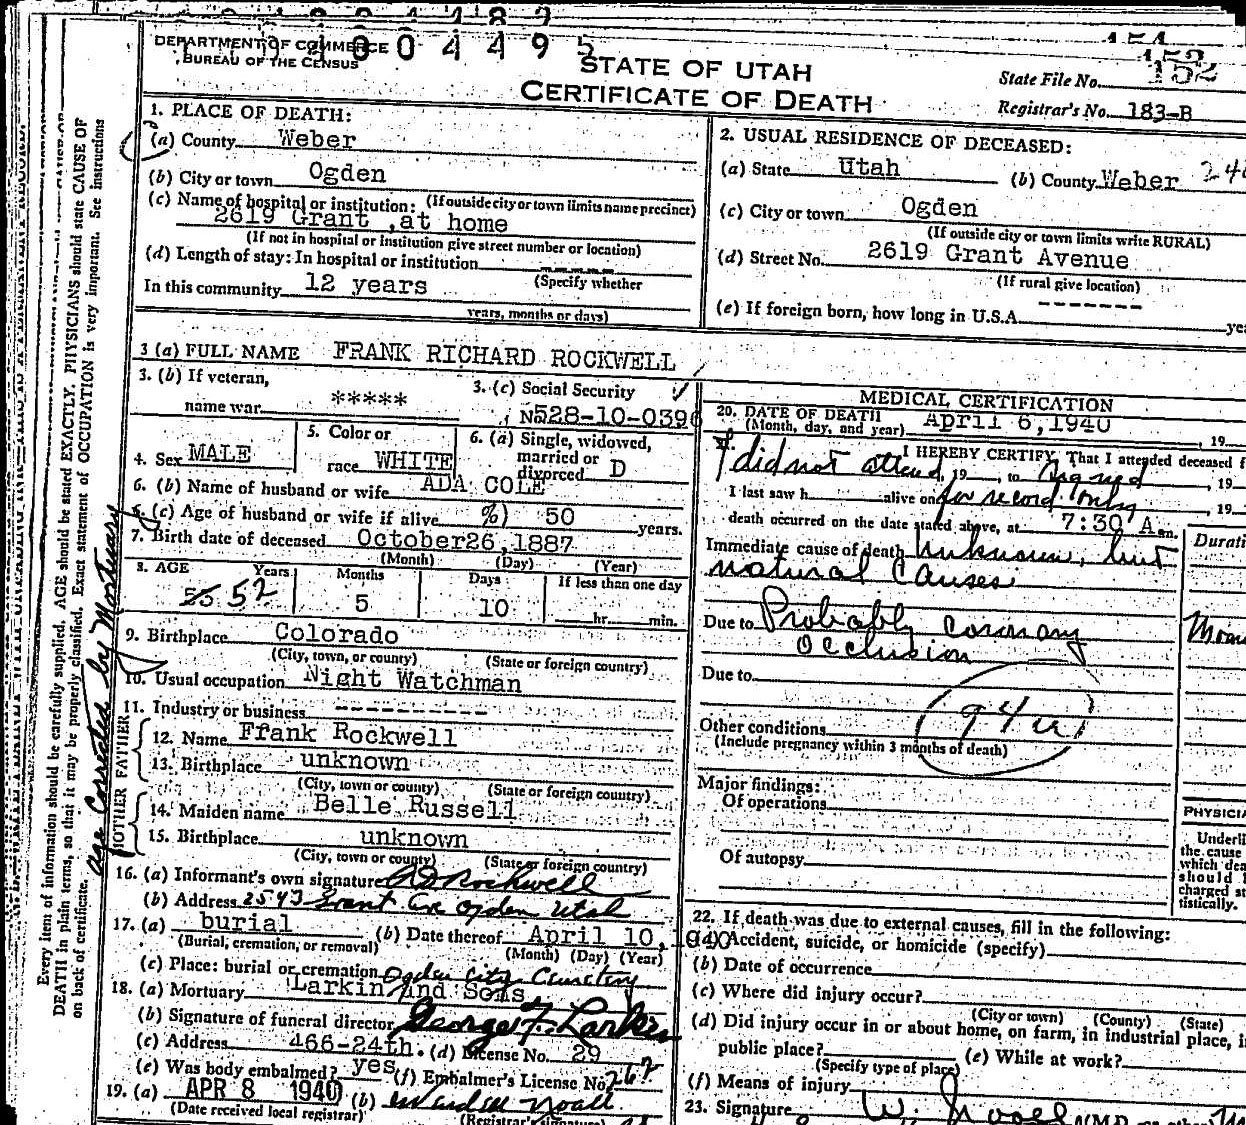 1004495
152
DEPARTMENT OF COMMERCE
BUREAU OF THE CENSUS
STATE OF UTAH
CERTIFICATE OF DEATH
State File No. 152
Registrar's No. 183-B
1. PLACE OF DEATH:
(a) County Weber
(b) City or town Ogden
(If outside city or town limits name precinct)
(c) Name of hospital or institution:
2619 Grant ,at home
(If not in hospital or institution give street number or location)
(d) Length of stay: In hospital or institution ----
(Specify whether
In this community 12 years
years, months or days)
2. USUAL RESIDENCE OF DECEASED:
(a) State Utah (b) County Weber
(c) City or town Ogden
(If outside city or town limits write RURAL)
(d) Street No. 2619 Grant Avenue
(If rural give location)
(e) If foreign born, how long in U.S.A. -------
3 (a) FULL NAME FRANK RICHARD ROCKWELL
3. (b) If veteran,
name war *****
3. (c) Social Security
No 528-10-0396
4. Sex MALE
5. Color or
race WHITE
6. (a) Single, widowed,
married or
divorced D
6. (b) Name of husband or wife ADA COLE
6. (c) Age of husband or wife if alive %) 50 years.
7. Birth date of deceased October26,1887
(Month) (Day) (Year)
8. AGE Years Months Days If less than one day
55 52 5 10 hr. min.
9. Birthplace Colorado
(City, town, or county) (State or foreign country)
10. Usual occupation Night Watchman
11. Industry or business ----------
FATHER
12. Name Frank Rockwell
13. Birthplace unknown
(City, town or county) (State or foreign country)
MOTHER
14. Maiden name Belle Russell
15. Birthplace unknown
(City, town or county) (State or foreign country)
16. (a) Informant's own signature Rockwell
(b) Address 2543 Grant Ave Ogden Utah
17. (a) burial (b) Date thereof April 10, 1940
(Burial, cremation, or removal) (Month) (Day) (Year)
(c) Place: burial or cremation Ogden City Cemetery
18. (a) Mortuary Larkin and Sons
(b) Signature of funeral director George F. Larkin
(c) Address 466-24th. (d) License No. 29
(e) Was body embalmed? yes (f) Embalmer's License No. 267
19. (a) APR 8 1940 (b)
(Date received local registrar) (Registrar's signature)
MEDICAL CERTIFICATION
20. DATE OF DEATH April 6,1940
(Month, day, and year) , 19
21. I HEREBY CERTIFY, That I attended deceased f
I did not attend, 19 , to Signed , 19
I last saw h alive on for record only , 19
death occurred on the date stated above, at 7:30 A m.
Immediate cause of death Unknown, but
natural causes
Durati
Due to Probably coronary
occlusion
Due to
94a
Other conditions
(Include pregnancy within 3 months of death)
Major findings:
Of operations
Of autopsy
PHYSICIA
Underli
the cause
which dea
should
charged st
tistically.
22. If death was due to external causes, fill in the following:
(a) Accident, suicide, or homicide (specify)
(b) Date of occurrence
(c) Where did injury occur?
(City or town) (County) (State)
(d) Did injury occur in or about home, on farm, in industrial place, i
public place? (e) While at work?
(Specify type of place)
(f) Means of injury
23. Signature W.
Every item of information should be carefully supplied. AGE should be stated EXACTLY. PHYSICIANS should state CAUSE OF
DEATH in plain terms, so that it may be properly classified. Exact statement of OCCUPATION is very important. See instructions
on back of certificate.
age corrected by Mortuary